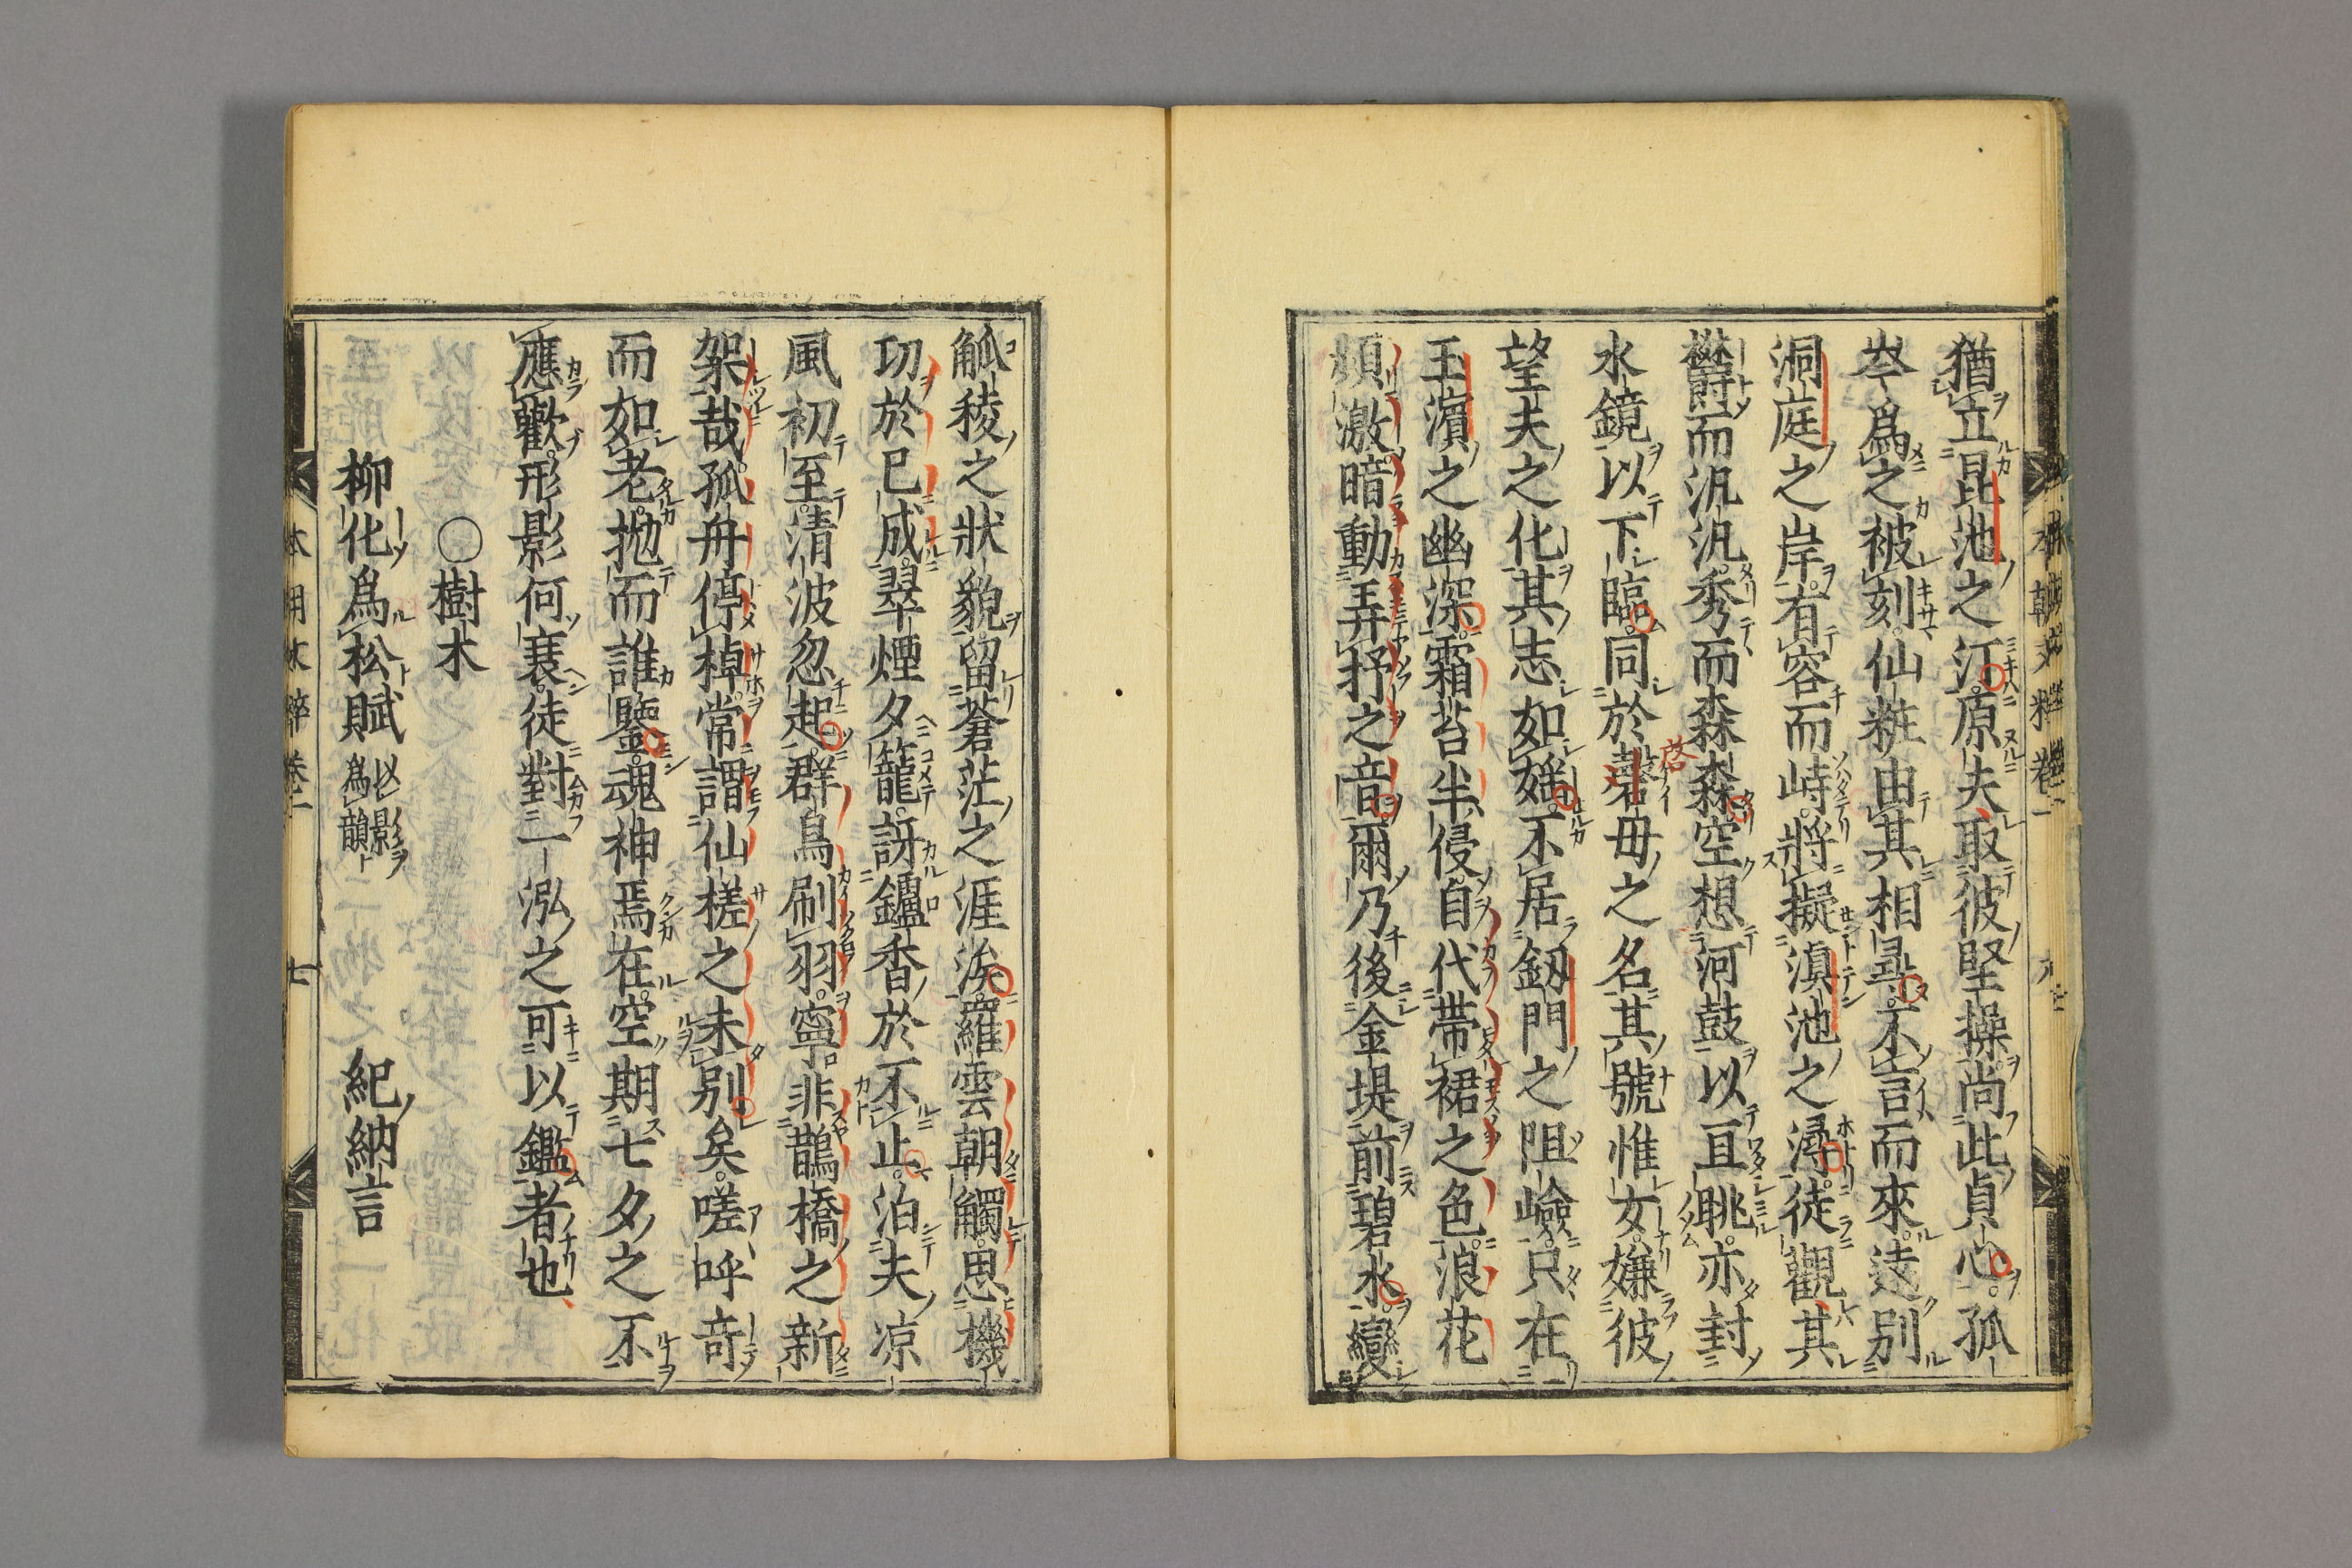 猶立昆池之汀原夫取彼堅操尚此貞心孤
岑爲之被刻仙粧由其相尋不言而來遠別
洞庭之岸有容而峙將擬滇池之潯徒觀其
欝而汎汎秀而森森空想河鼓以亘眺亦封
水鏡以下臨同於磬母之名其號惟女嫌彼
望夫之化其志如嫌不居釼門之阻嶮只在
玉濵之幽深霜苔半侵自代帶裙之色浪花
頻激暗動弄抒之音爾乃後金堤前碧水變
觚稜之狀貌留蒼茫之涯涘羅雲朝觸思機
功於已成翠煙夕籠訝鑪香於不止泊夫凉
風初至清波忽起群鳥刷羽寧非鵲橋之新
架哉孤舟停棹常謂仙槎之未別矣嗟呼奇
而如老抛而誰鑒魂神焉在空期七夕之不
應歡形影何衰徒對一泓之可以鑑者也
○樹木
柳化爲松賦 以影爲韻 紀納言
啓
本朝文粹卷一
本朝文粹卷一 七